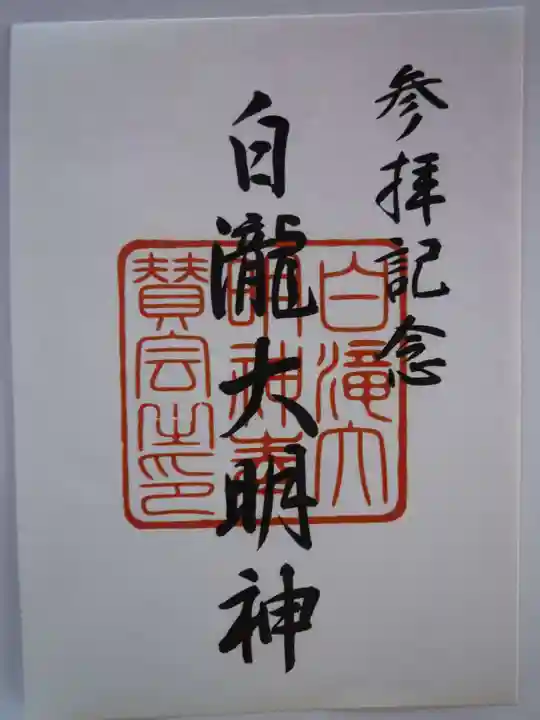 参拝記念
白瀧大明神
白滝大
明神奉
賛会之印